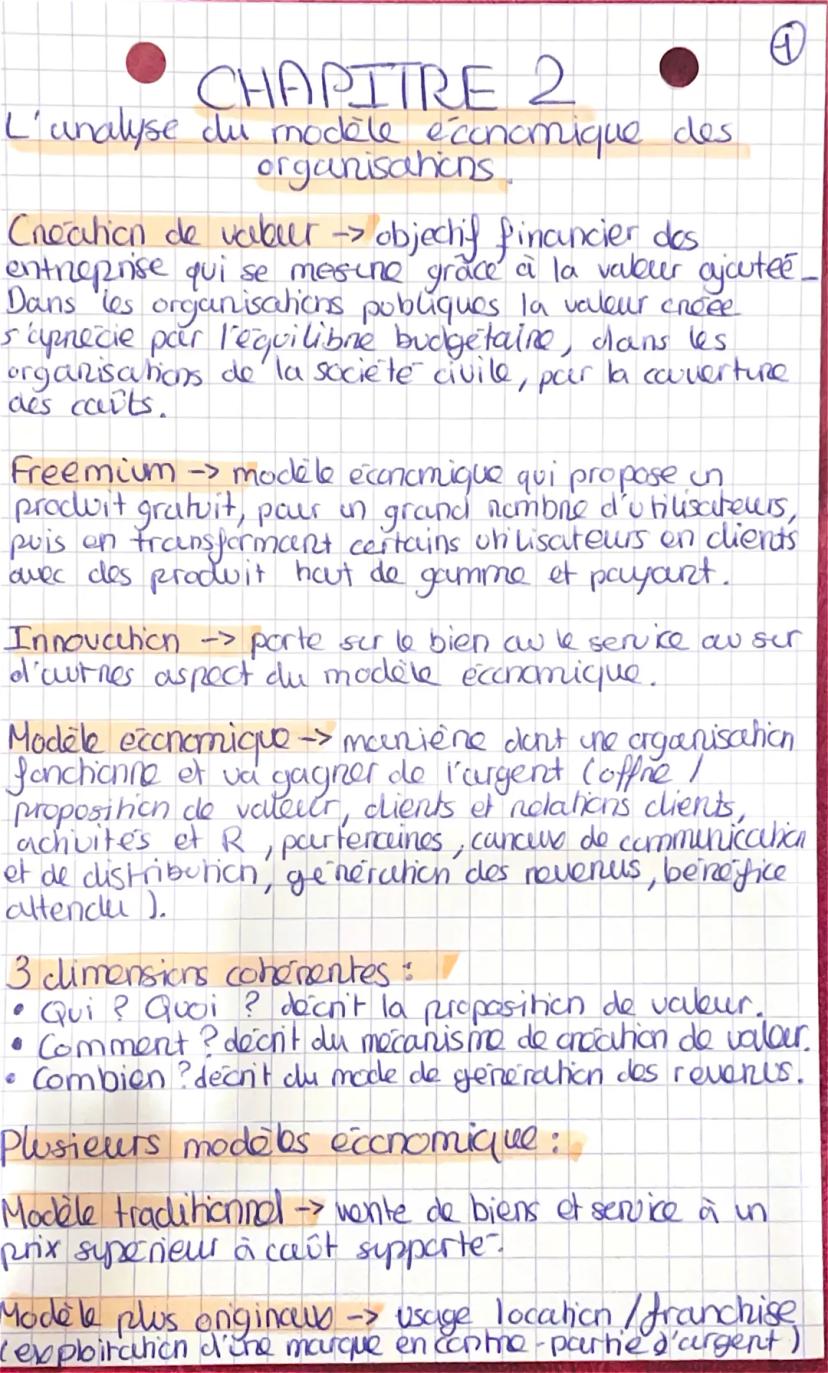 1
CHAPITRE 2
L'analyse du modèle économique des
organisations.
Création de valeur -> objectif financier des
entreprise qui se mesure grâce à la valeur ajouteé.
Dans les organisations publiques la valeur créée
s'aprecie par l'équilibre budgétaire, dans les
organisations de la société civile, par la couverture
des coûts.
Freemium -> modèle économique qui propose un
produit gratuit, pour un grand nombre d'utilisateurs,
puis en transformant certains utilisateurs en clients
avec des produit haut de gamme et payant.
Innovation -> porte sur le bien ou le service ou sur
d'autres aspect du modèle économique.
Modèle économique -> manière dont une organisation
fonctionne et va gagner de l'argent (offre /
proposition de valeur, clients et relations clients,
activités et R, partenaires, canaux de communication
et de distribution, génération des revenus, bénéfice
attendu).
3 dimensions cohérentes :
• Qui ? Quoi ? décrit la proposition de valeur.
• Comment ? décrit du mécanisme de création de valeur.
• Combien ? décrit du mode de génération des revenus.
Plusieurs modèles économique :
Modèle traditionnel -> vente de biens et service à un
prix supérieur à coût supporté.
Modèle plus originaux -> usage location / franchise
(exploitation d'une marque en contre-partie d'argent)